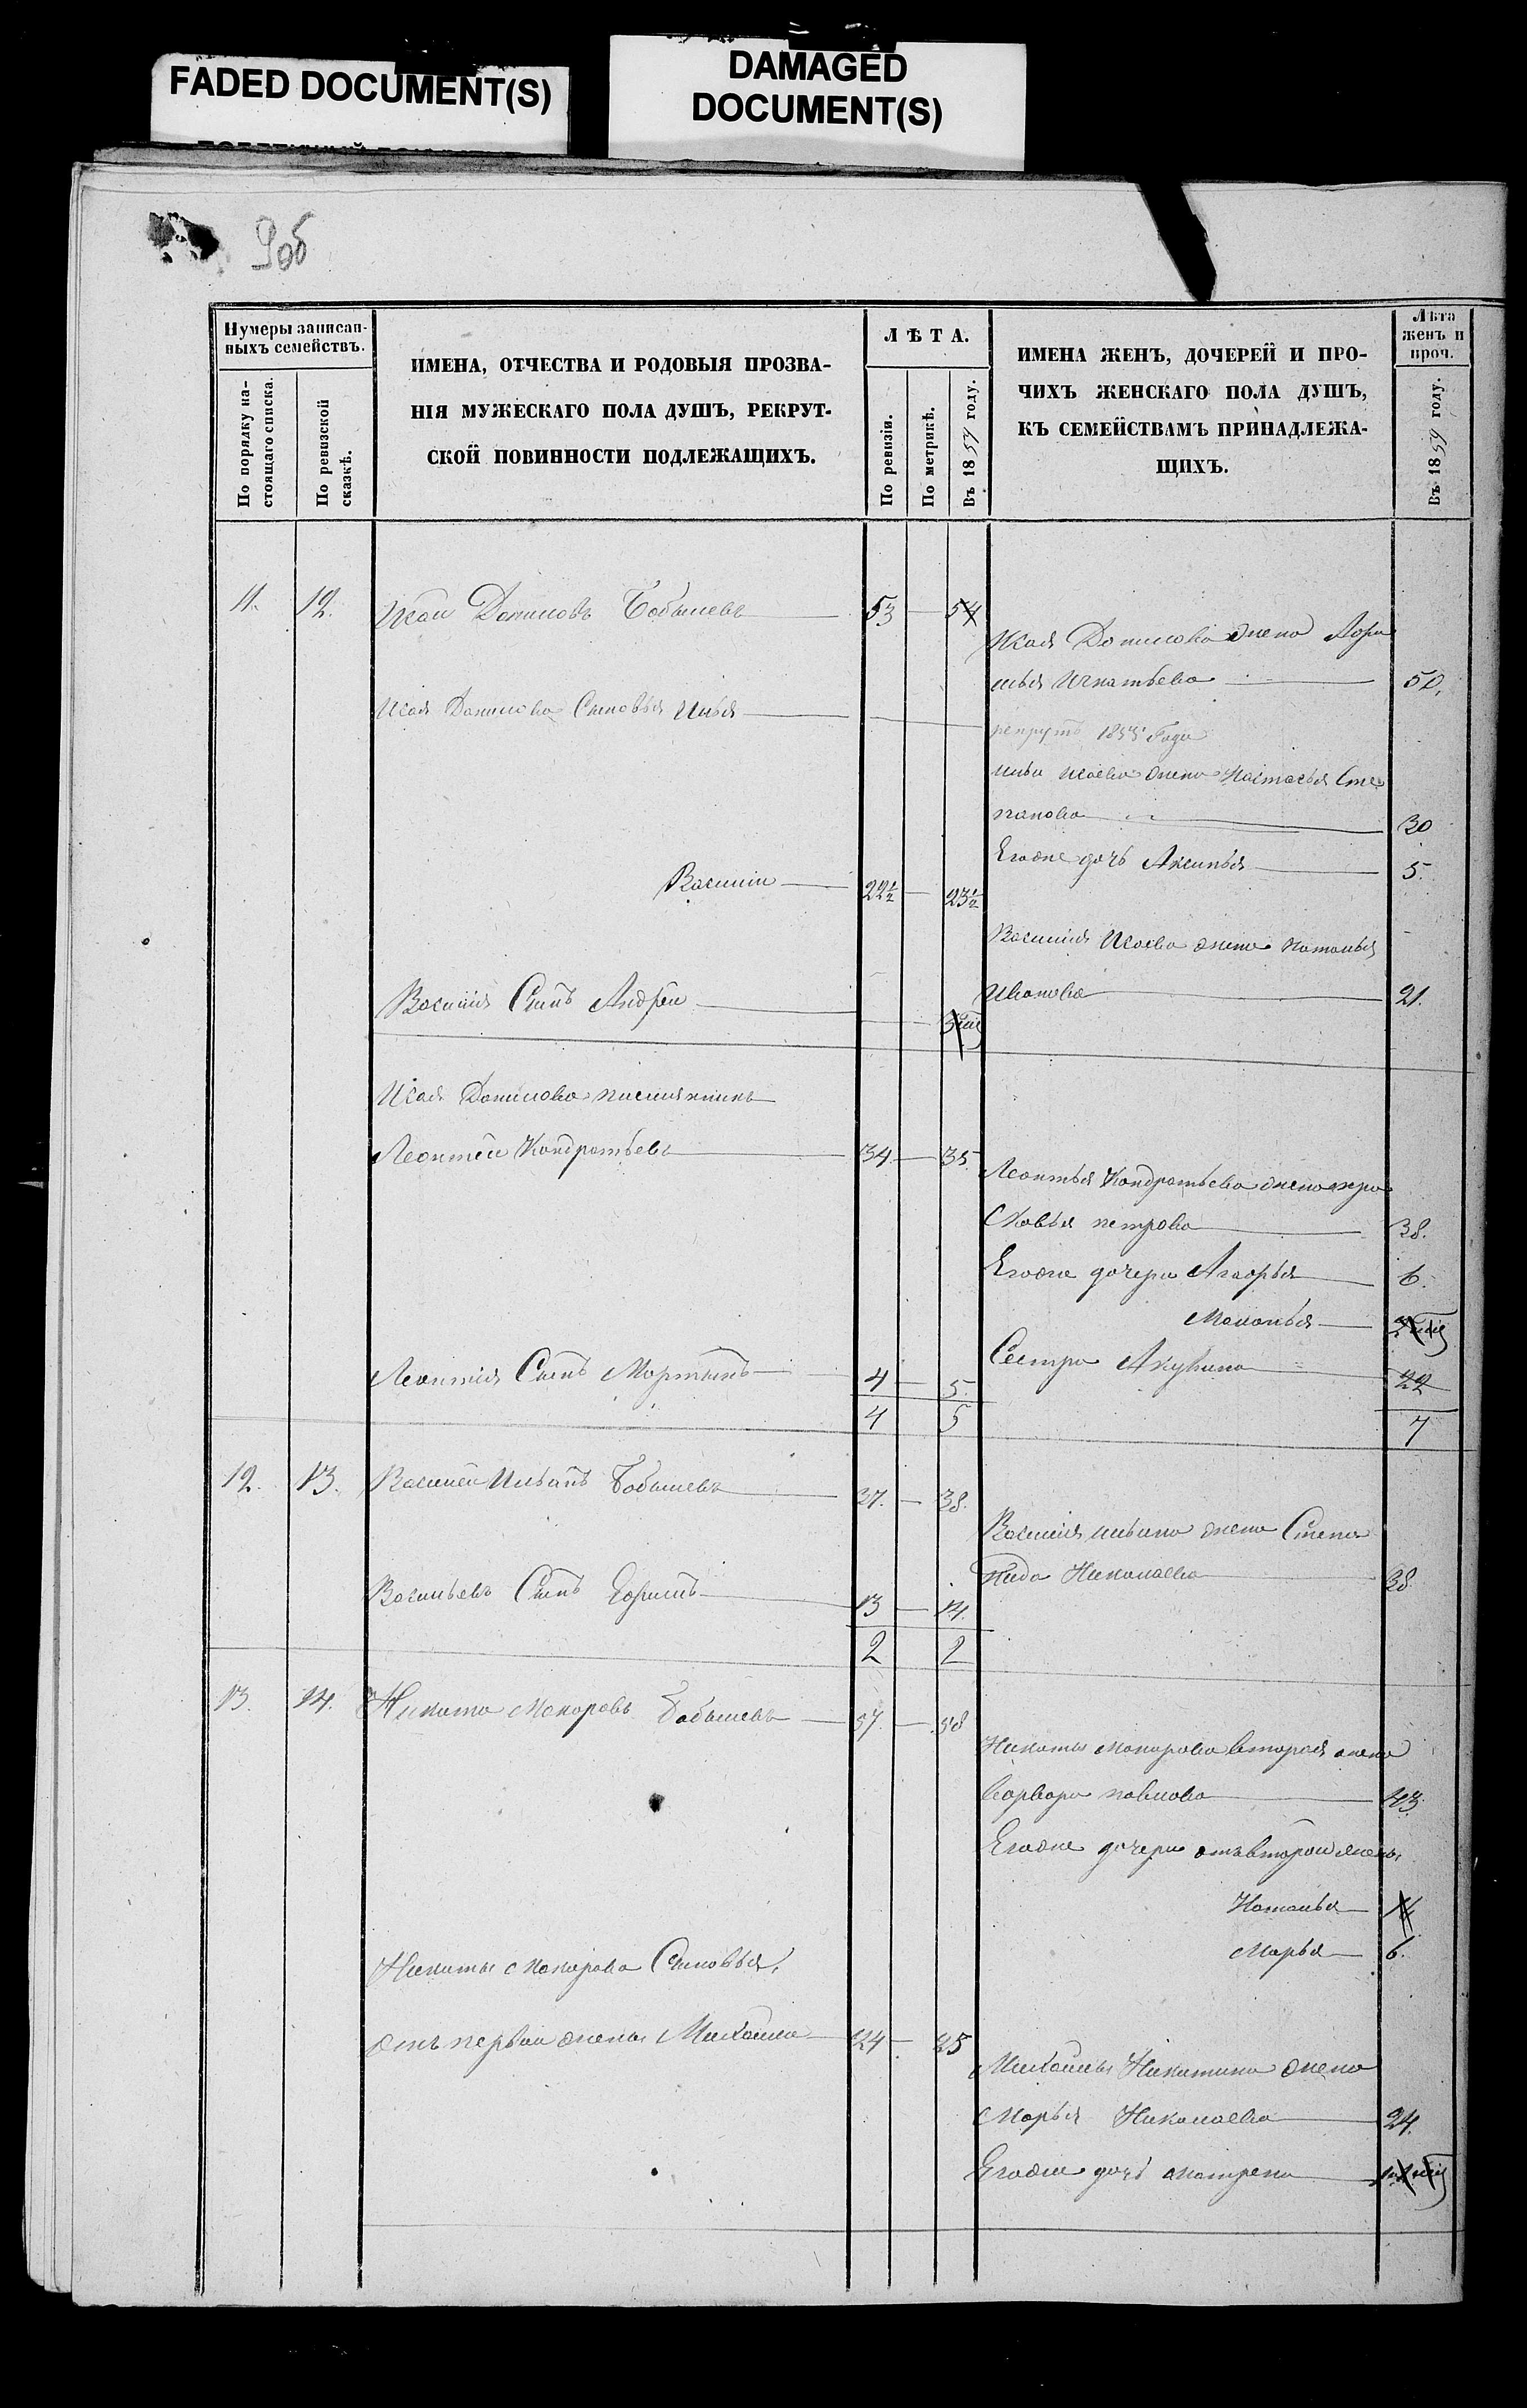 FADED DOCUMENT(S)
DAMAGED
DOCUMENT(S)
9об
Нумеры записан-
ныхъ семействъ.
По порядку на-
стоящаго списка.
По ревизской
сказкѣ.
ИМЕНА, ОТЧЕСТВА И РОДОВЫЯ ПРОЗВА-
НІЯ МУЖЕСКАГО ПОЛА ДУШЪ, РЕКРУТ-
СКОЙ ПОВИННОСТИ ПОДЛЕЖАЩИХЪ.
ЛѢТА.
По ревизіи.
По метрикѣ.
Въ 1859 году.
ИМЕНА ЖЕНЪ, ДОЧЕРЕЙ И ПРО-
ЧИХЪ ЖЕНСКАГО ПОЛА ДУШЪ,
КЪ СЕМЕЙСТВАМЪ ПРИНАДЛЕЖА-
ЩИХЪ.
Лѣта
женъ и
проч.
Въ 1859 году.
11. 12. Исай Даниловъ Бобышевъ 53 54
Исая Данилова жена
Игнатьева 50.
Исая Данилова Сыновья Илья
рекрутъ 1855 Года
Ильи Исаева жена Настасья Сте
панова 30
Егоже дочь Аксинья 5.
Василій 22½ 23½
Василія Исаева жена Наталья
Иванова 21.
Василія Сынъ Андрей
Исая Данилова племянникъ
Леонтей Кондратьевъ 34 35.
Леонтья Кондратьева жена
петрова 38.
Егоже дочери 6.
Маланья
Сестра Акулина 22
Леонтія Сынъ Мартынъ 4 5.
4 5 7
12. 13. Василей Ильинъ Бобышевъ 37. 38.
Василія ильина жена Степа
нида Николаева 38
Васильевъ Сынъ Ефимъ 13 14.
2 2
13. 14. Никита Макаровъ Бобышевъ 57. 58
Никиты макарова вторая жена
варвара павлова 43.
Егоже дочери отъ второй жены
Наталья 14
Марья 6.
Никиты макарова Сыновья,
отъ первой жены Михайла 24 25
Михайлы Никитина жена
Марья Николаева 24.
Егоже дочь матрена